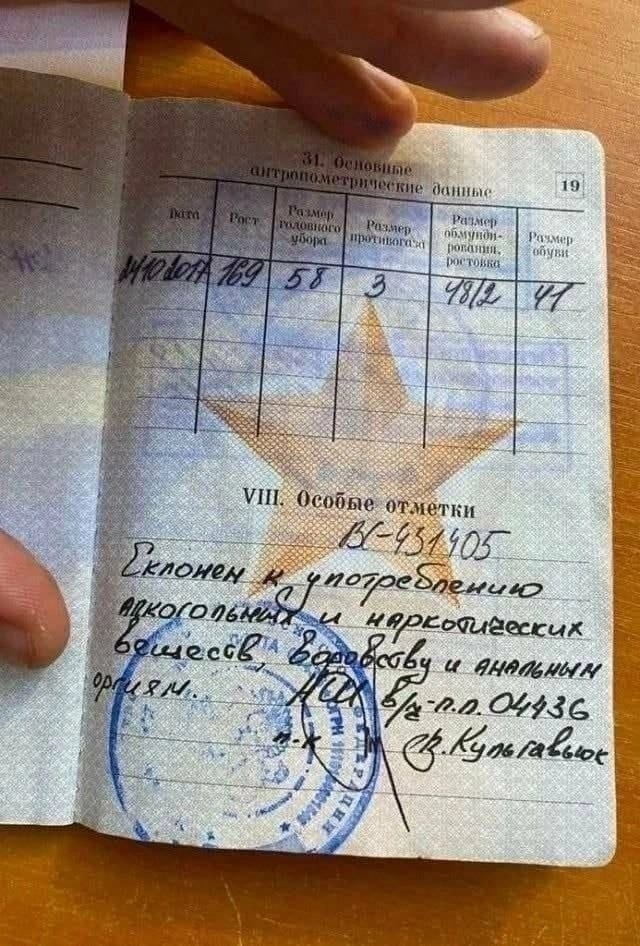 31. Основные
антропометрические данные
19
Дата
Рост
Размер
головного
убора
Размер
противогаза
Размер
обмунди-
рования,
ростовка
Размер
обуви
24102017 169 58 3 48/2 41
VIII. Особые отметки
ВС-431405
Склонен к употреблению
алкогольных и наркотических
веществ, воровству и анальным
оргиям..
НШ в/ч-п.п. 04436
п-к
Кульгавьюк